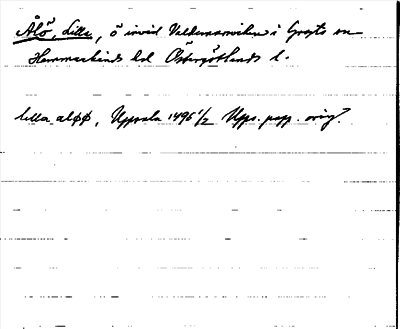 Ålö, Lilla, ö invid Valdemarsviken i Gryts sn
Hammarkinds hd Östergötlands l.
lilla aløø, Uppsala 1495 1/2 Upps. papp. orig.